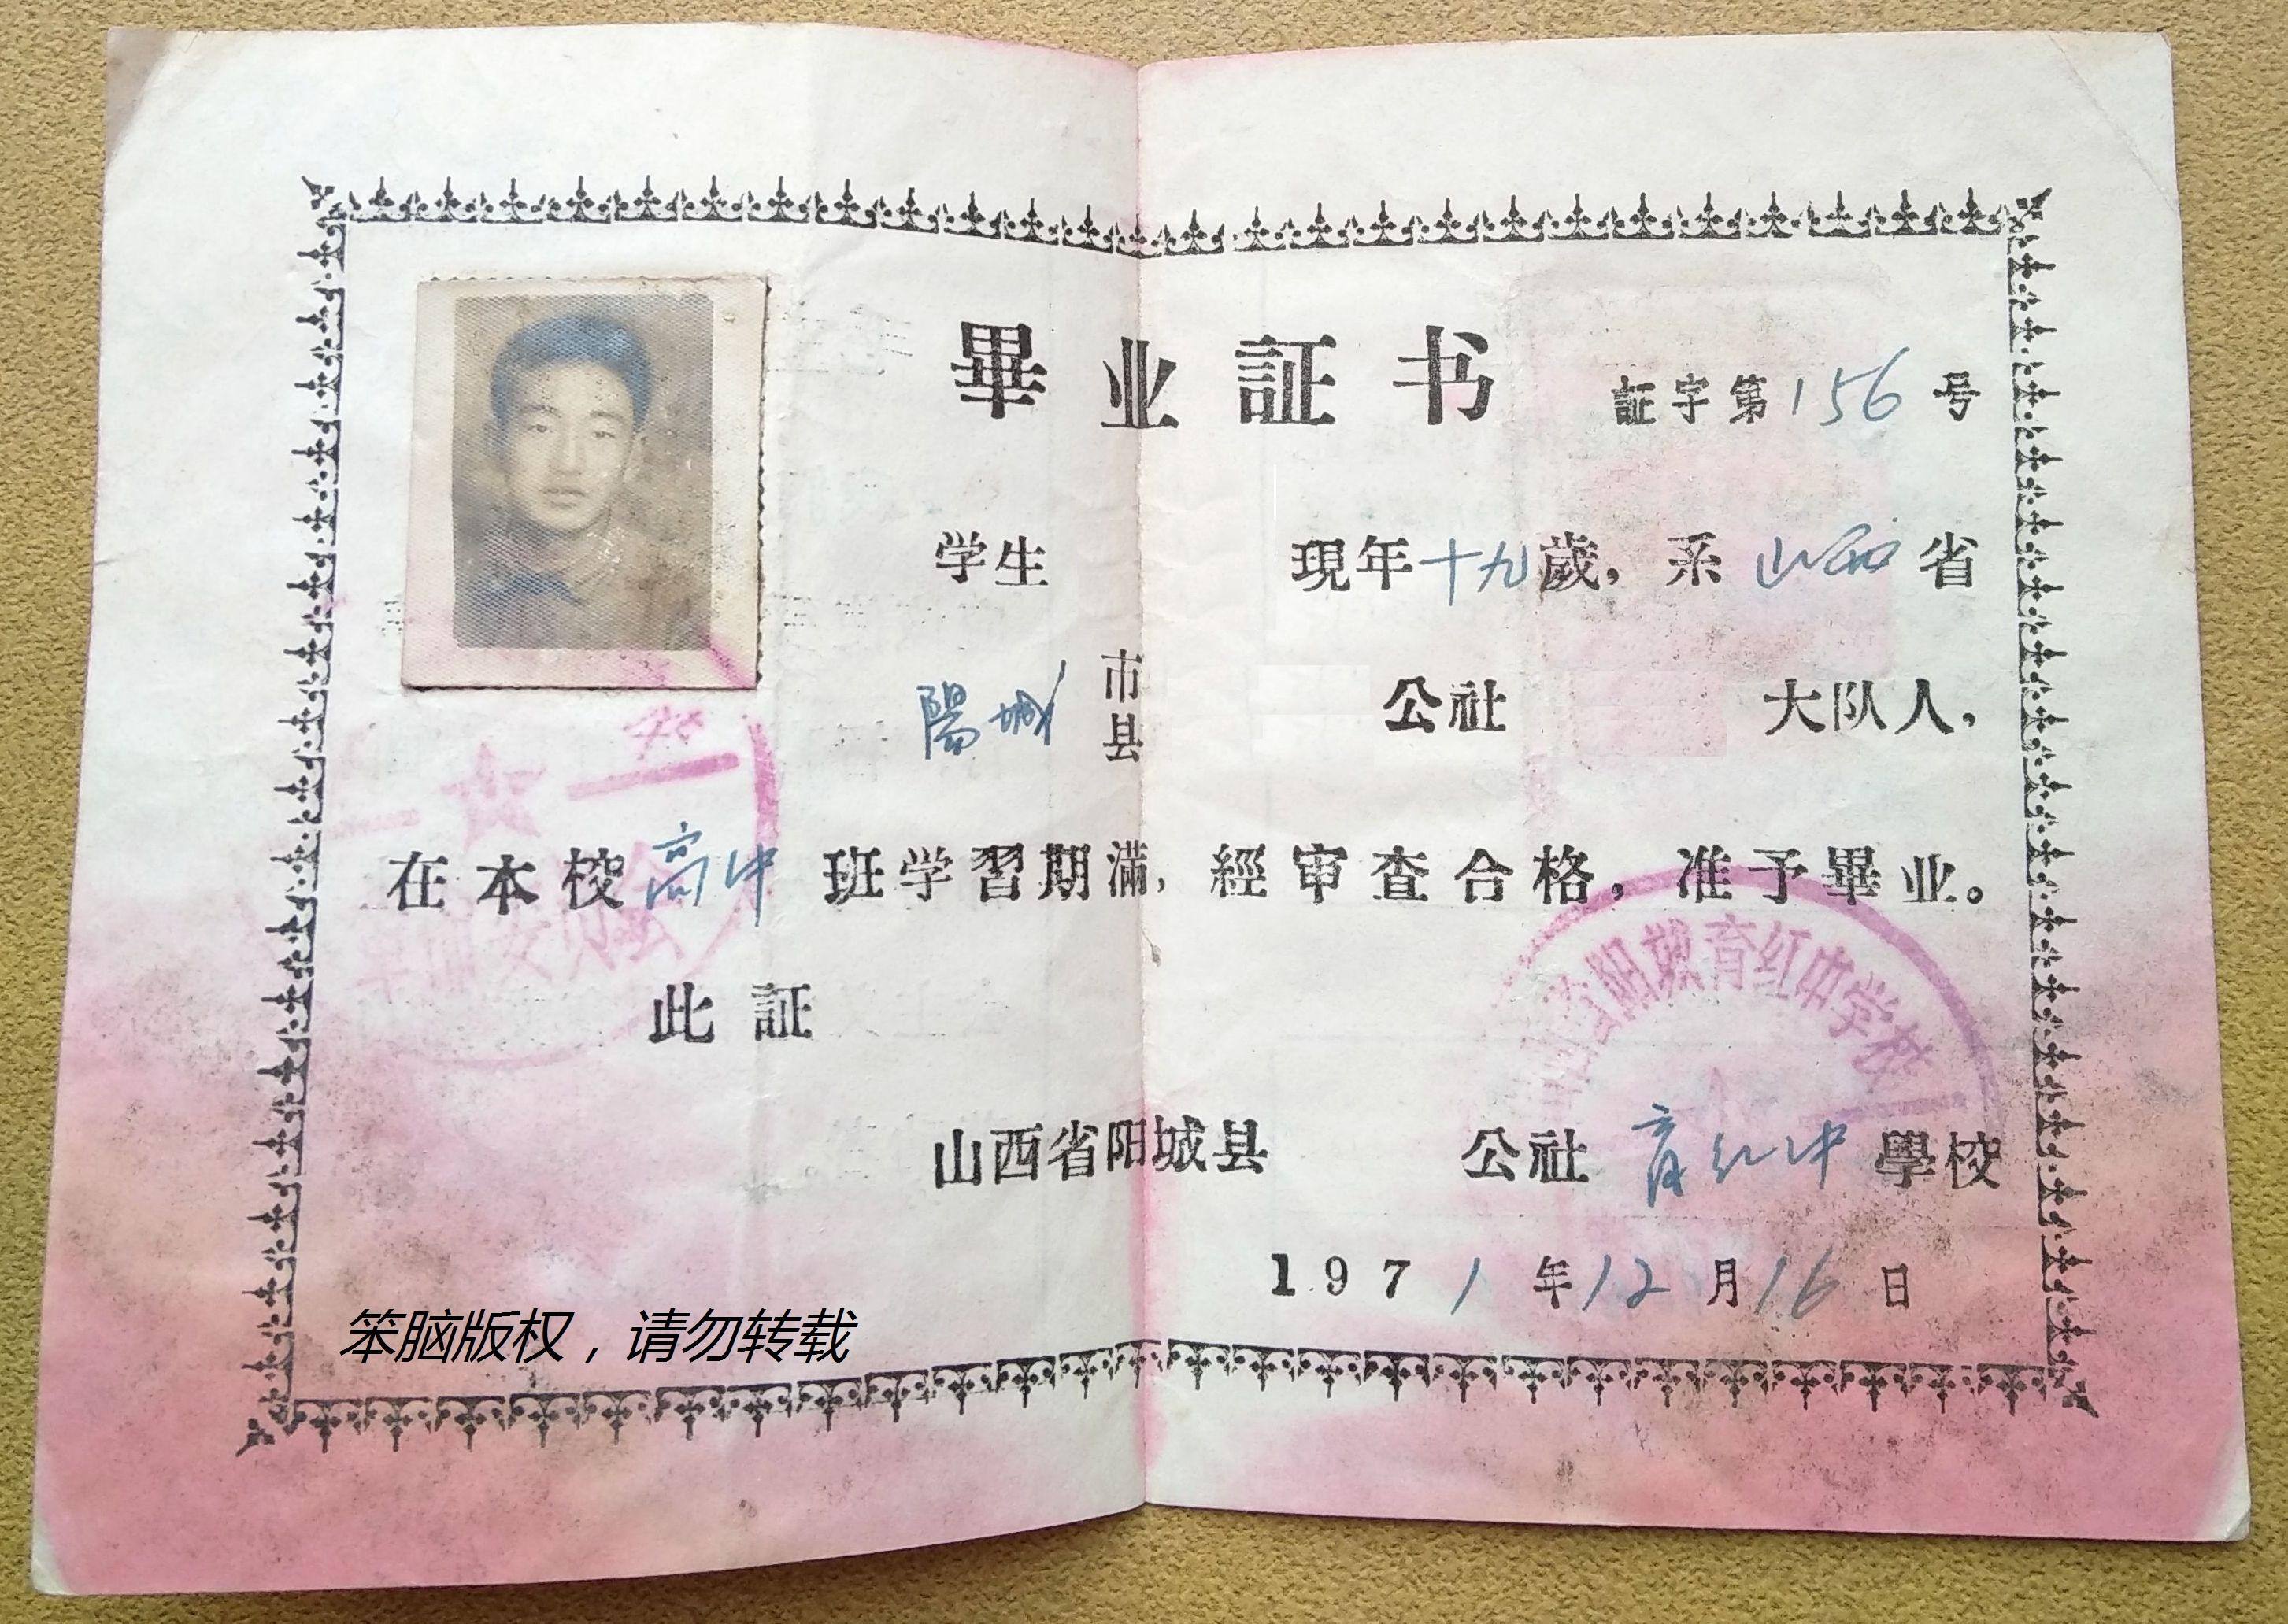 畢业証书
証字第156号
学生 現年十九歲，系山西省
陽城市县 公社 大队人，
在本校高中班学習期滿，經审查合格，准予畢业。
此証
山西省阳城育红中学校
山西省阳城县 公社育红中學校
1971年12月16日
笨脑版权，请勿转载